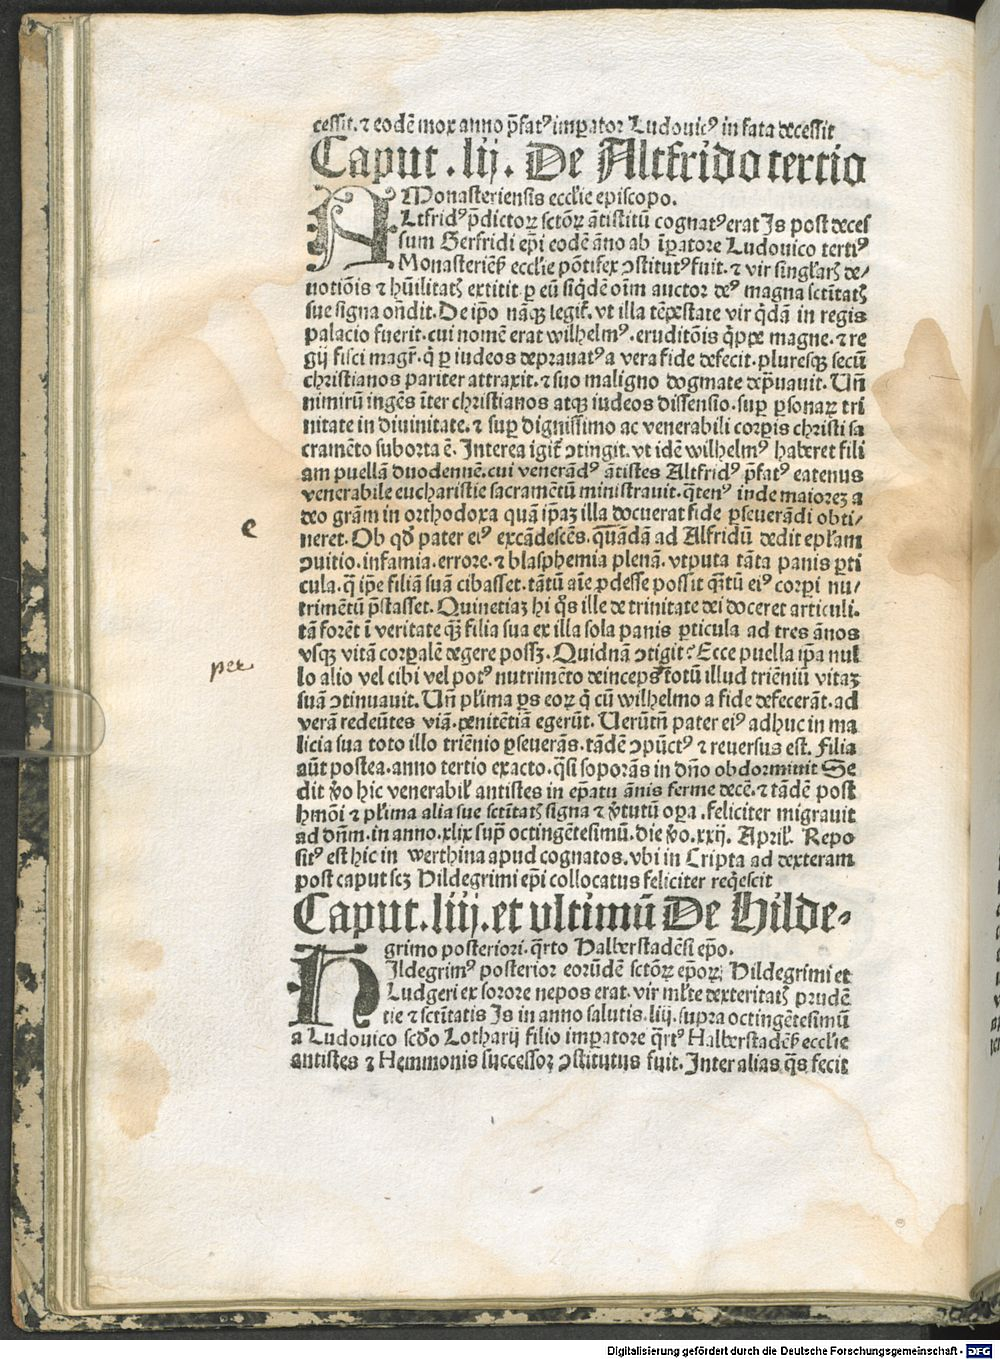 cessit. ⁊ eodē mox anno p̄fatꝰ imꝑator Ludouicꝰ in fata decessit
Caput .lij. De Altfrido tertio
Monasteriensis eccl'ie episcopo.
ALtfridꝰ p̄dictoꝝ sctōꝝ ātistitū cognatꝰ erat Is post deces
sum Gerfridi ep̄i eodē āno ab īꝑatore Ludouico tertiꝰ
Monasteriēs̄ eccl'ie pōtifex ꝯstitutꝰ fuit. ⁊ vir singl'arꝭ de/
uotiōis ⁊ hūilitatꝭ extitit ꝑ eū siq̇dē oīm auctor deꝰ magna sctītatꝭ
sue signa on̄dit. De ip̄o nāqꝫ legit̄. vt illa tēpestate vir q̇dā in regis
palacio fuerit. cui nomē erat wilhelmꝰ. eruditōis q̇ppe magne. ⁊ re
gij fisci magr̄. q̇ ꝑ iudeos deprauatꝰ a vera fide defecit. pluresqꝫ secū
christianos pariter attraxit. ⁊ suo maligno dogmate dep̄uauit. Un̄
nimirū ingēs īter christianos atqꝫ iudeos dissensio. suꝑ ꝑsonaꝝ tri
nitate in diuinitate. ⁊ suꝑ dignissimo ac venerabili corꝑis christi sa
cramēto suborta ē. Interea igit̄ ꝯtingit. vt idē wilhelmꝰ haberet fili
am puellā duodennē. cui venerādꝰ ātistes Altfridꝰ p̄fatꝰ eatenus
venerabile eucharistie sacramētū ministrauit. q̄tenꝰ inde maiorez a
deo grām in orthodoxa quā ip̄aꝫ illa docuerat fide ꝑseuerādi obti/
neret. Ob qd̄ pater eiꝰ excādescēs. quādā ad Alfridū dedit epl'am
ꝯuitio. infamia. errore. ⁊ blasphemia plenā. vtputa tāta panis ꝑti
cula. q̄ ip̄e filiā suā cibasset. tātū aīe ꝓdesse possit q̄tū eiꝰ corꝑi nu/
trimētū p̄stasset. Quinetiaꝫ hi q̇s ille de trinitate dei doceret articuli.
tā forēt ī veritate q̄ꝫ filia sua ex illa sola panis ꝑticula ad tres ānos
vsqꝫ vitā corꝑalē degere possꝫ. Quidnā ꝯtigit? Ecce puella ip̄a nul
lo alio vel cibi vel potꝰ nutrimēto deinceps totū illud triēniū vitaꝫ
suā ꝯtinuauit. Un̄ pl'ima ꝑs eoꝝ q̇ cū wilhelmo a fide defecerāt. ad
verā redeūtes viā. penitētiā egerūt. Uerūtn̄ pater eiꝰ adhuc in ma
licia sua toto illo triēnio ꝑseuerās. tādē ꝯpūctꝰ ⁊ reuersus est. Filia
aūt postea. anno tertio exacto. q̄si soporās in dn̄o obdormiuit Se
dit v̊o hic venerabil' antistes in ep̄atu ānis ferme decē. ⁊ tādē post
hmōi ⁊ pl'ima alia sue sctītatꝭ signa ⁊ v̊tutū oꝑa. feliciter migrauit
ad dn̄m. in anno .xlix supͣ octingētesimū. die v̊o .xxij. April'. Repo
sitꝰ est hic in werthina apud cognatos. vbi in Cripta ad dexteram
post caput scꝫ Hildegrimi ep̄i collocatus feliciter req̇escit
Caput .liij. et vltimū De Hilde-
grimo posteriori. q̄rto Halberstadēsi ep̄o.
HIldegrimꝰ posterior eorūdē sctōꝝ ep̄oꝝ Hildegrimi et
Ludgeri ex sorore nepos erat. vir ml'te dexteritatꝭ prudē
tie ⁊ sctītatis Is in anno salutis .liij. supra octingētesimū
a Ludouico scd̄o Lotharij filio imꝑatore q̄rtꝰ Halberstadēs̄ eccl'ie
antistes ⁊ Hemmonis successor ꝯstitutus fuit. Inter alias q̄s fecit
e
per
Digitalisierung gefördert durch die Deutsche Forschungsgemeinschaft - DFG